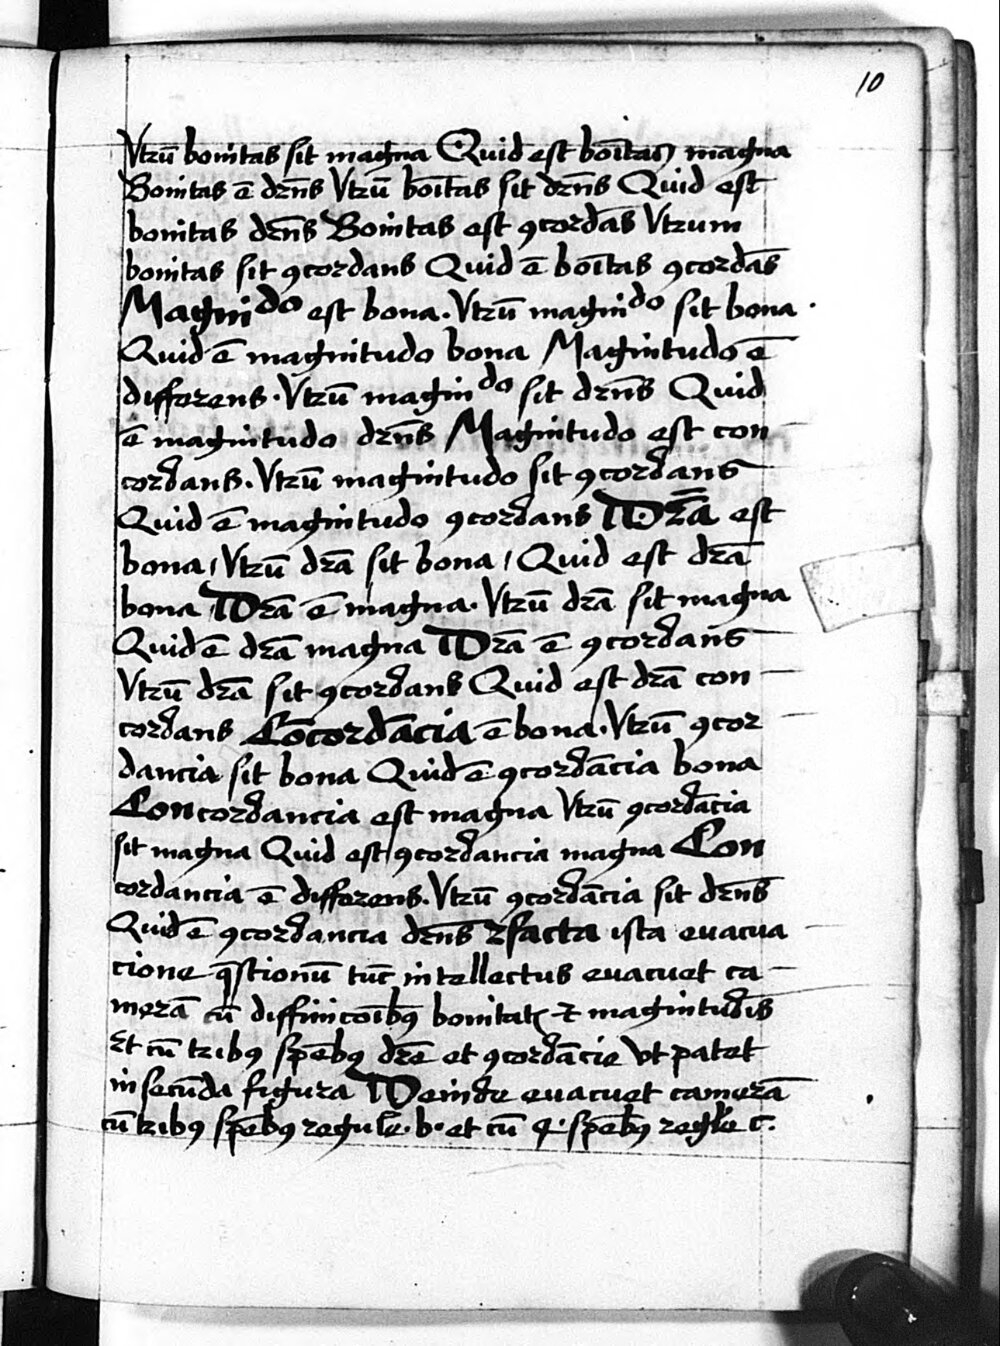 10
Vtrū bonitas sit magna Quid est boītas magna
Bonitas ē drn̄s Vtrū boītas sit drn̄s Quid est
bonitas drn̄s Bonitas est ꝯcordās Vtrum
bonitas sit ꝯcordans Quid ē boītas ꝯcordās
Magnido est bona. Vtrū magnido sit bona.
Quid ē magnitudo bona Magnitudo ē
differens. Vtrū magnido sit drn̄s Quid
ē magnitudo drn̄s Magnitudo est con
cordans. Vtrū magnitudo sit ꝯcordans
Quid ē magnitudo ꝯcordans Drā est
bona / Vtrū drā sit bona / Quid est drā
bona Drā ē magna. Vtrū drā sit magna
Quid ē drā magna Drā ē ꝯcordans
Vtrū drā sit ꝯcordans Quid est drā con
cordans Cōcordācia ē bona. Vtrū ꝯcor
dancia sit bona Quid ē ꝯcordācia bona
Concordancia est magna Vtrū ꝯcordācia
sit magna Quid est ꝯcordancia magna Con
cordancia ē differens. Vtrū ꝯcordācia sit drn̄s
Quid ē ꝯcordancia drn̄s Rfacta ista euacua
cione q̄stionū tūc intellectus euacuet ca
merā cū diffinicoībꝯ bonitatꝭ ⁊ magnitudīs
Et cū tribꝯ spēbꝯ drē et ꝯcordācie vt patet
in secūda figura Deinde euacuet camerā
cū tribꝯ spēbꝯ regule .b. et cū 4. spēbꝯ regle c.